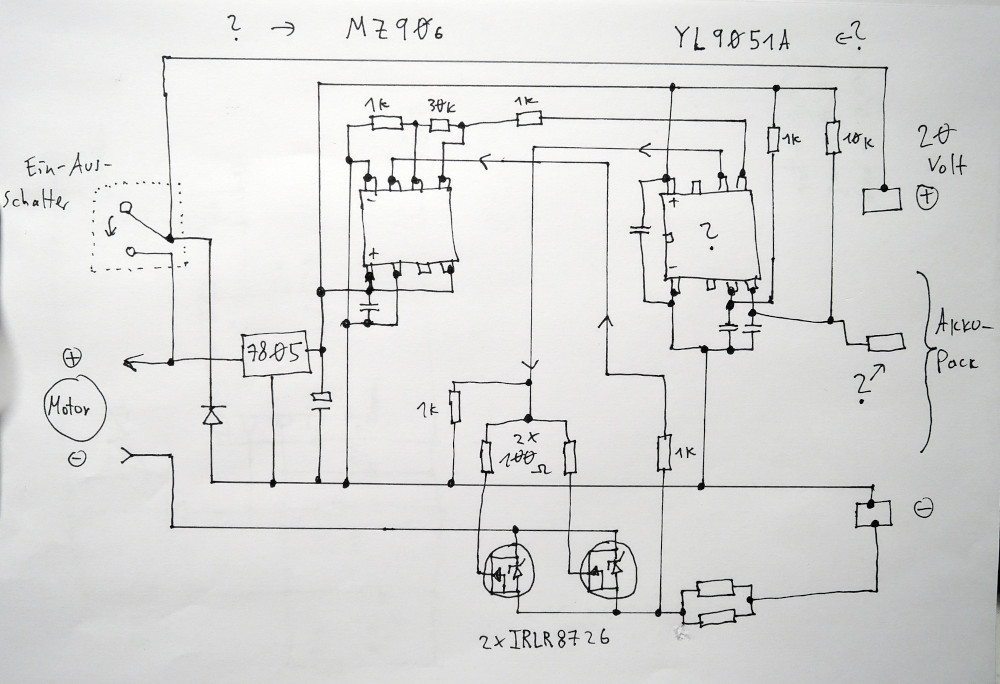 ? → MZ906
YL9051A ←?
1k
30k
1k
1k
10k
20
Volt
+
Ein-Aus-
Schalter
-
+
+
?
-
Akku-
Pack
?
+
7805
Motor
-
1k
2x
100
Ω
1k
-
2xIRLR8726